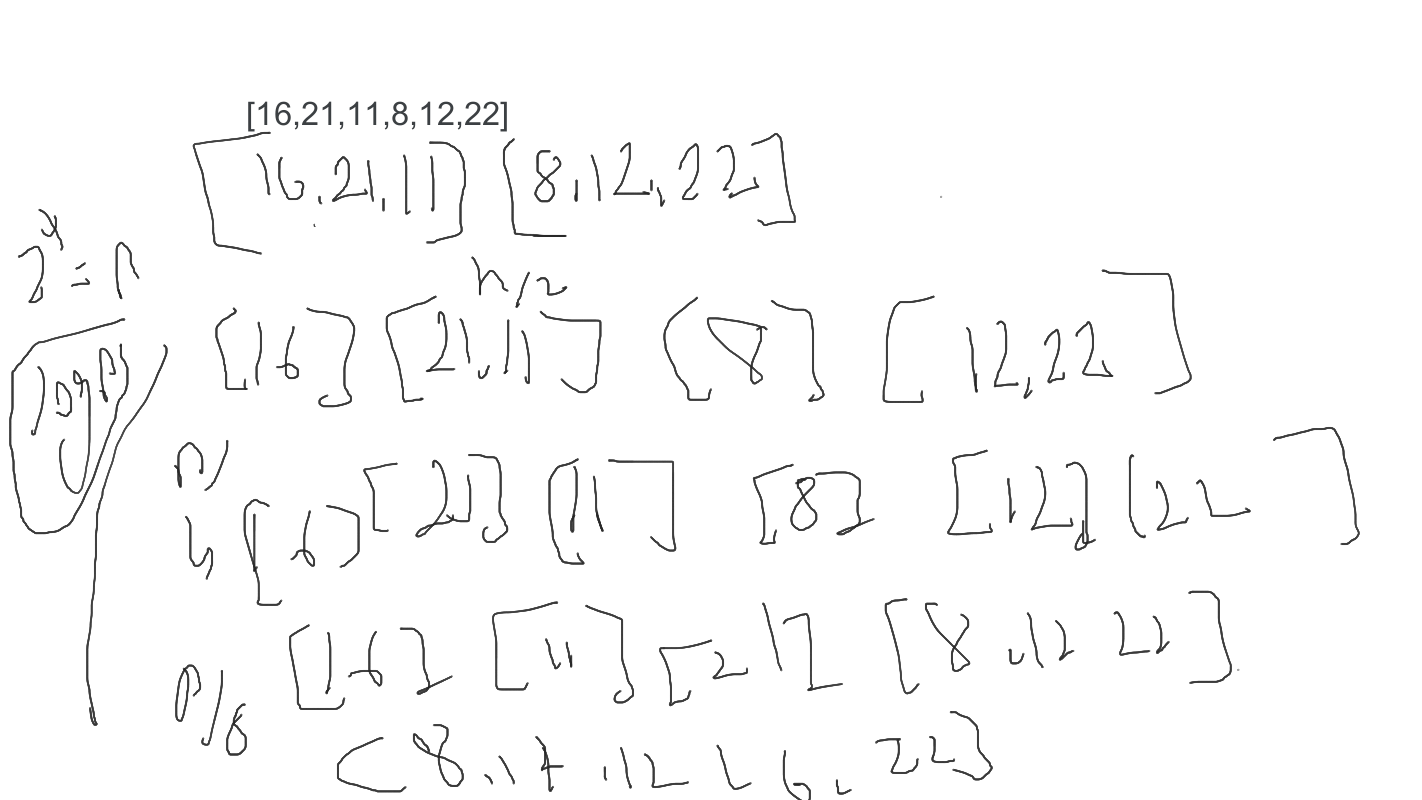 [16,21,11,8,12,22]
[16,21,11] [8,12,22]
2^x = n
n/2
[16] [21,11] [8] [12,22]
log n
n/4
[16] [21] [11] [8] [12] [22]
[16] [11] [21] [8,12 22]
n/8
8, 12 22]